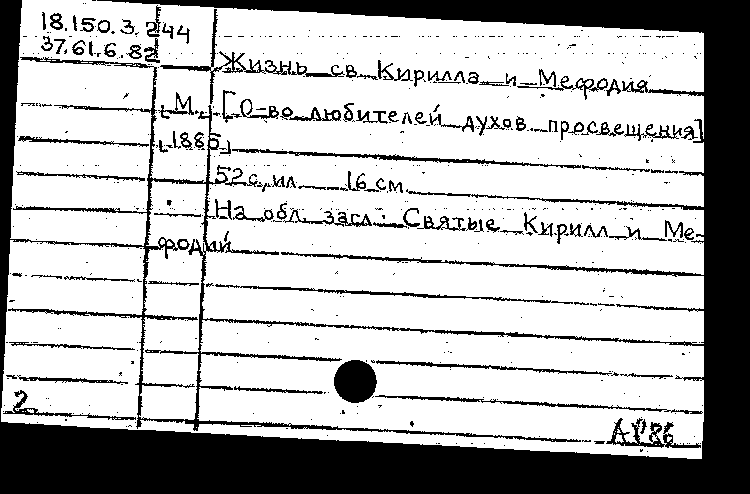 18.150.3.244
37.61.6.82
Жизнь св Кирилла и Мефодия
[М.] [О-во любителей духов просвещения]
[1885]
52 с, ил 16 см
На обл. загл: Святые Кирилл и Ме-
фодий
2
АР86